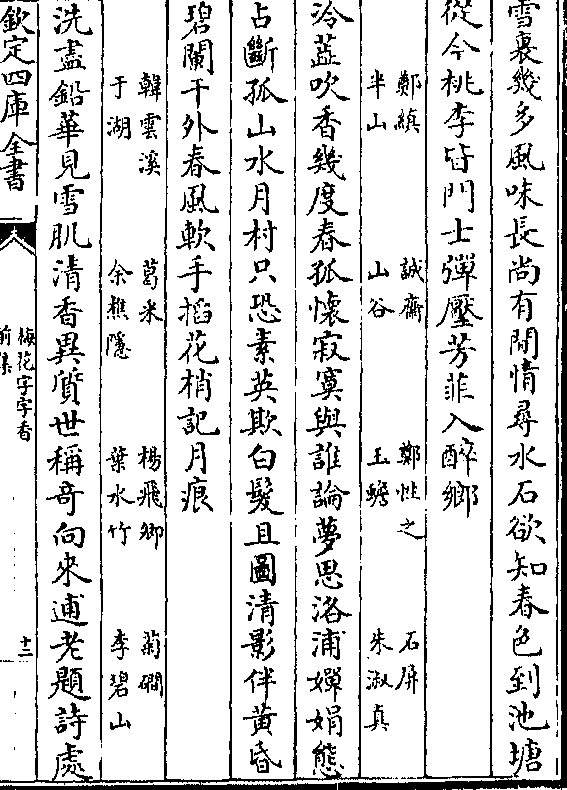 雪裏幾多風味長尚有閒情尋水石欲知春色到池塘
從今桃李皆門士彈壓芳菲入醉鄉
鄭縝　誠齋　鄭性之　石屏
半山　山谷　玉蟾　朱淑真
冷蕋吹香幾度春孤懷寂寞與誰論夢思洛浦嬋娟態
占斷孤山水月村只恐素英欺白髮且圖清影伴黃昏
碧闌干外春風軟手搯花梢記月痕
韓雲溪　葛米　楊飛卿　菊磵
于湖　余樵隱　葉水竹　李碧山
洗盡鉛華見雪肌清香異質世稱奇向來逋老題詩處
欽定四庫全書
梅花字字香
前集
十二